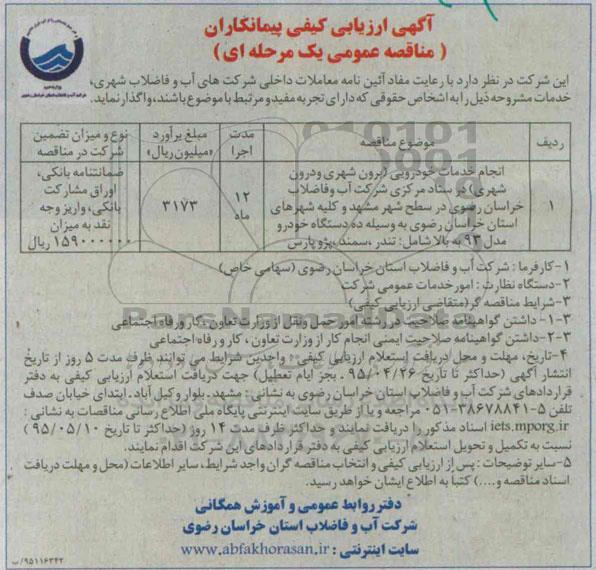 آگهی ارزیابی کیفی پیمانکاران
( مناقصه عمومی یک مرحله ای )
این شرکت در نظر دارد با رعایت مفاد آئین نامه معاملات داخلی شرکت های آب و فاضلاب شهری،
خدمات مشروحه ذیل را به اشخاص حقوقی که دارای تجربه مفید و مرتبط با موضوع باشند، واگذار نماید.
ردیف
موضوع مناقصه
مدت اجرا
مبلغ برآورد «میلیون ریال»
نوع و میزان تضمین شرکت در مناقصه
۱
انجام خدمات خودرویی (برون شهری ودرون
شهری) در ستاد مرکزی شرکت آب وفاضلاب
خراسان رضوی در سطح شهر مشهد و کلیه شهرهای
استان خراسان رضوی به وسیله ده دستگاه خودرو
مدل ۹۳ به بالا شامل: تندر ،سمند ،پژو پارس
۱۲ ماه
۳۱۷۳
ضمانتنامه بانکی،
اوراق مشارکت
بانکی، واریز وجه
نقد به میزان
۱۵۹۰۰۰۰۰۰ ریال
۱-کارفرما : شرکت آب و فاضلاب استان خراسان رضوی (سهامی خاص)
۲-دستگاه نظارت : امور خدمات عمومی شرکت
۳-شرایط مناقصه گر(متقاضی ارزیابی کیفی)
۳-۱- داشتن گواهینامه صلاحیت در رشته امور حمل ونقل از وزارت تعاون ، کار و رفاه اجتماعی
۳-۲- داشتن گواهینامه صلاحیت ایمنی انجام کار از وزارت تعاون ، کار و رفاه اجتماعی
۴-تاریخ، مهلت و محل دریافت استعلام ارزیابی کیفی : واجدین شرایط می توانند ظرف مدت ۵ روز از تاریخ
انتشار آگهی (حداکثر تا تاریخ ۹۵/۰۴/۲۶ ـ بجز ایام تعطیل) جهت دریافت استعلام ارزیابی کیفی به دفتر
قراردادهای شرکت آب و فاضلاب استان خراسان رضوی به نشانی : مشهد ـ بلوار وکیل آباد ـ ابتدای خیابان صدف
تلفن ۵-۳۸۶۷۸۸۴۱-۰۵۱ مراجعه و یا از طریق سایت اینترنتی پایگاه ملی اطلاع رسانی مناقصات به نشانی :
iets.mporg.ir اسناد مذکور را دریافت نمایند و حداکثر ظرف مدت ۱۴ روز (حداکثر تا تاریخ ۹۵/۰۵/۱۰ )
نسبت به تکمیل و تحویل استعلام ارزیابی کیفی به دفتر قراردادهای این شرکت اقدام نمایند.
۵-سایر توضیحات : پس از ارزیابی کیفی و انتخاب مناقصه گران واجد شرایط، سایر اطلاعات (محل و مهلت دریافت
اسناد مناقصه و....) کتبا به اطلاع ایشان خواهد رسید.
دفتر روابط عمومی و آموزش همگانی
شرکت آب و فاضلاب استان خراسان رضوی
سایت اینترنتی : www.abfakhorasan.ir
۹۵۱۱۶۳۴۲/ب